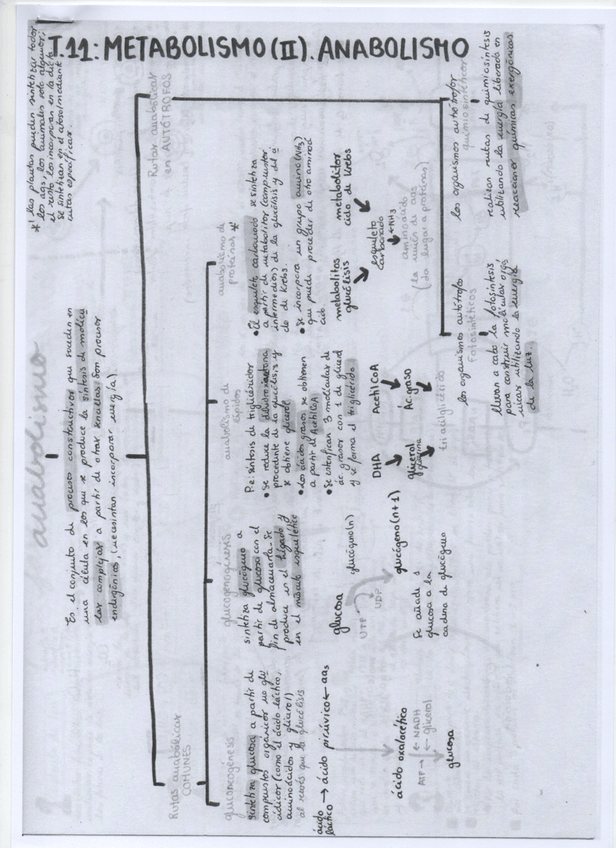 T.11: METABOLISMO (II). ANABOLISMO
* las plantas pueden sintetizar todos
los aas, los animales solo algunos,
el resto los incorporan en la dieta
anabolismo
Es el conjunto de procesos constructivos que suceden en
una célula en los que se produce la síntesis de molécu
las complejas a partir de otras sencillas. Son procesos
endergónicos, (necesitan incorporar energía)
Rutas anabólicas
COMUNES
gluconeogénesis
sintetiza glucosa a partir de
compuestos orgánicos no glu
cídicos (como el ácido láctico,
aminoácidos y glicerol)
al revés que la glucólisis
ácido láctico → ácido pirúvico ← aas
ácido oxalacético
ATP → ← NADH
← glicerol
glucosa
glucogenogénesis
sintetiza glucógeno a
partir de glucosa con el
fin de almacenarla. Se
produce en el hígado y
en el músculo esquelético
glucosa
UTP
UDP
glucógeno(n)
glucógeno(n+1)
Se añade 1
glucosa a la
cadena de glucógeno
anabolismo de
lípidos
P.e: síntesis de triglicéridos
• Se reduce la dihidroxiacetona
procedente de la glucólisis y
se obtiene glicerol
• Los ácidos grasos se obtienen
a partir de AcetilCoA
• Se esterifican 3 moléculas de
ác grasos con 1 de glicerol
y se forma el triglicérido
DHA
AcetilCoA
glicerol
glicerina
Ác graso
triacilglicérido
anabolismo de
proteínas *
• El esqueleto carbonado se sintetiza
a partir de metabolitos (compuestos
intermedios) de la glucólisis y del ci
clo de Krebs.
• Se incorpora un grupo amino (NH2)
que puede proceder de otro aminoá
cido
metabolitos
glucólisis
metabolitos
ciclo de Krebs
esqueleto
carbonado
← +NH3
aminoácido
(la unión de aas
da lugar a proteínas)
Rutas anabólicas
en AUTÓTROFOS
los organismos autótrofos
fotosintéticos
llevan a cabo la fotosíntesis
para construir moléculas orgá
nicas utilizando la energía
de la luz.
los organismos autótrofos
quimiosintéticos
realizan rutas de quimiosíntesis
utilizando la energía liberada en
reacciones químicas exergónicas